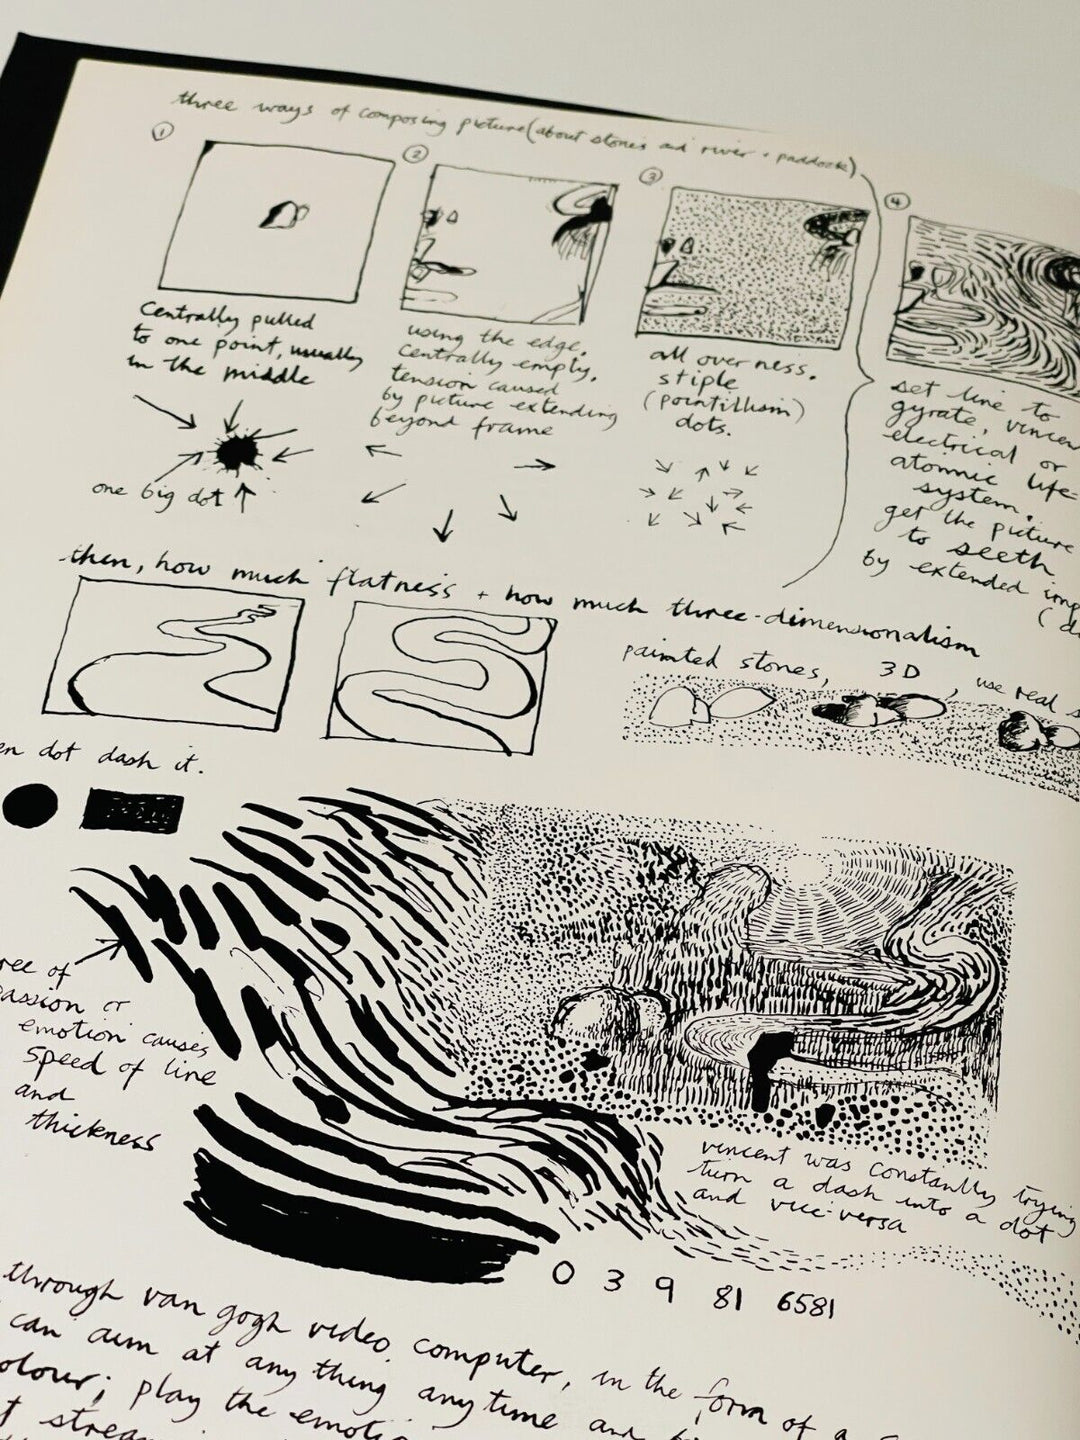 three ways of composing picture (about stones and river + paddock)
1
2
3
4
Centrally pulled
to one point, usually
in the middle
one big dot
using the edge,
centrally empty.
tension caused
by picture extending
beyond frame
all over ness.
stiple
(pointillism)
dots.
set line to
gyrate, vincen
electrical or
atomic life-
system.
get the picture
to seeth
by extended
then, how much flatness + how much three-dimensionalism
painted stones, 3D, use real s
en dot dash it.
ree of
passion or
emotion causes
speed of line
and
thickness
vincent was constantly trying
turn a dash into a dot
and vice-versa
0 3 9 81 6581
through van gogh video computer, in the form of a
can aim at any thing any time and
olour; play the emotio
t strea